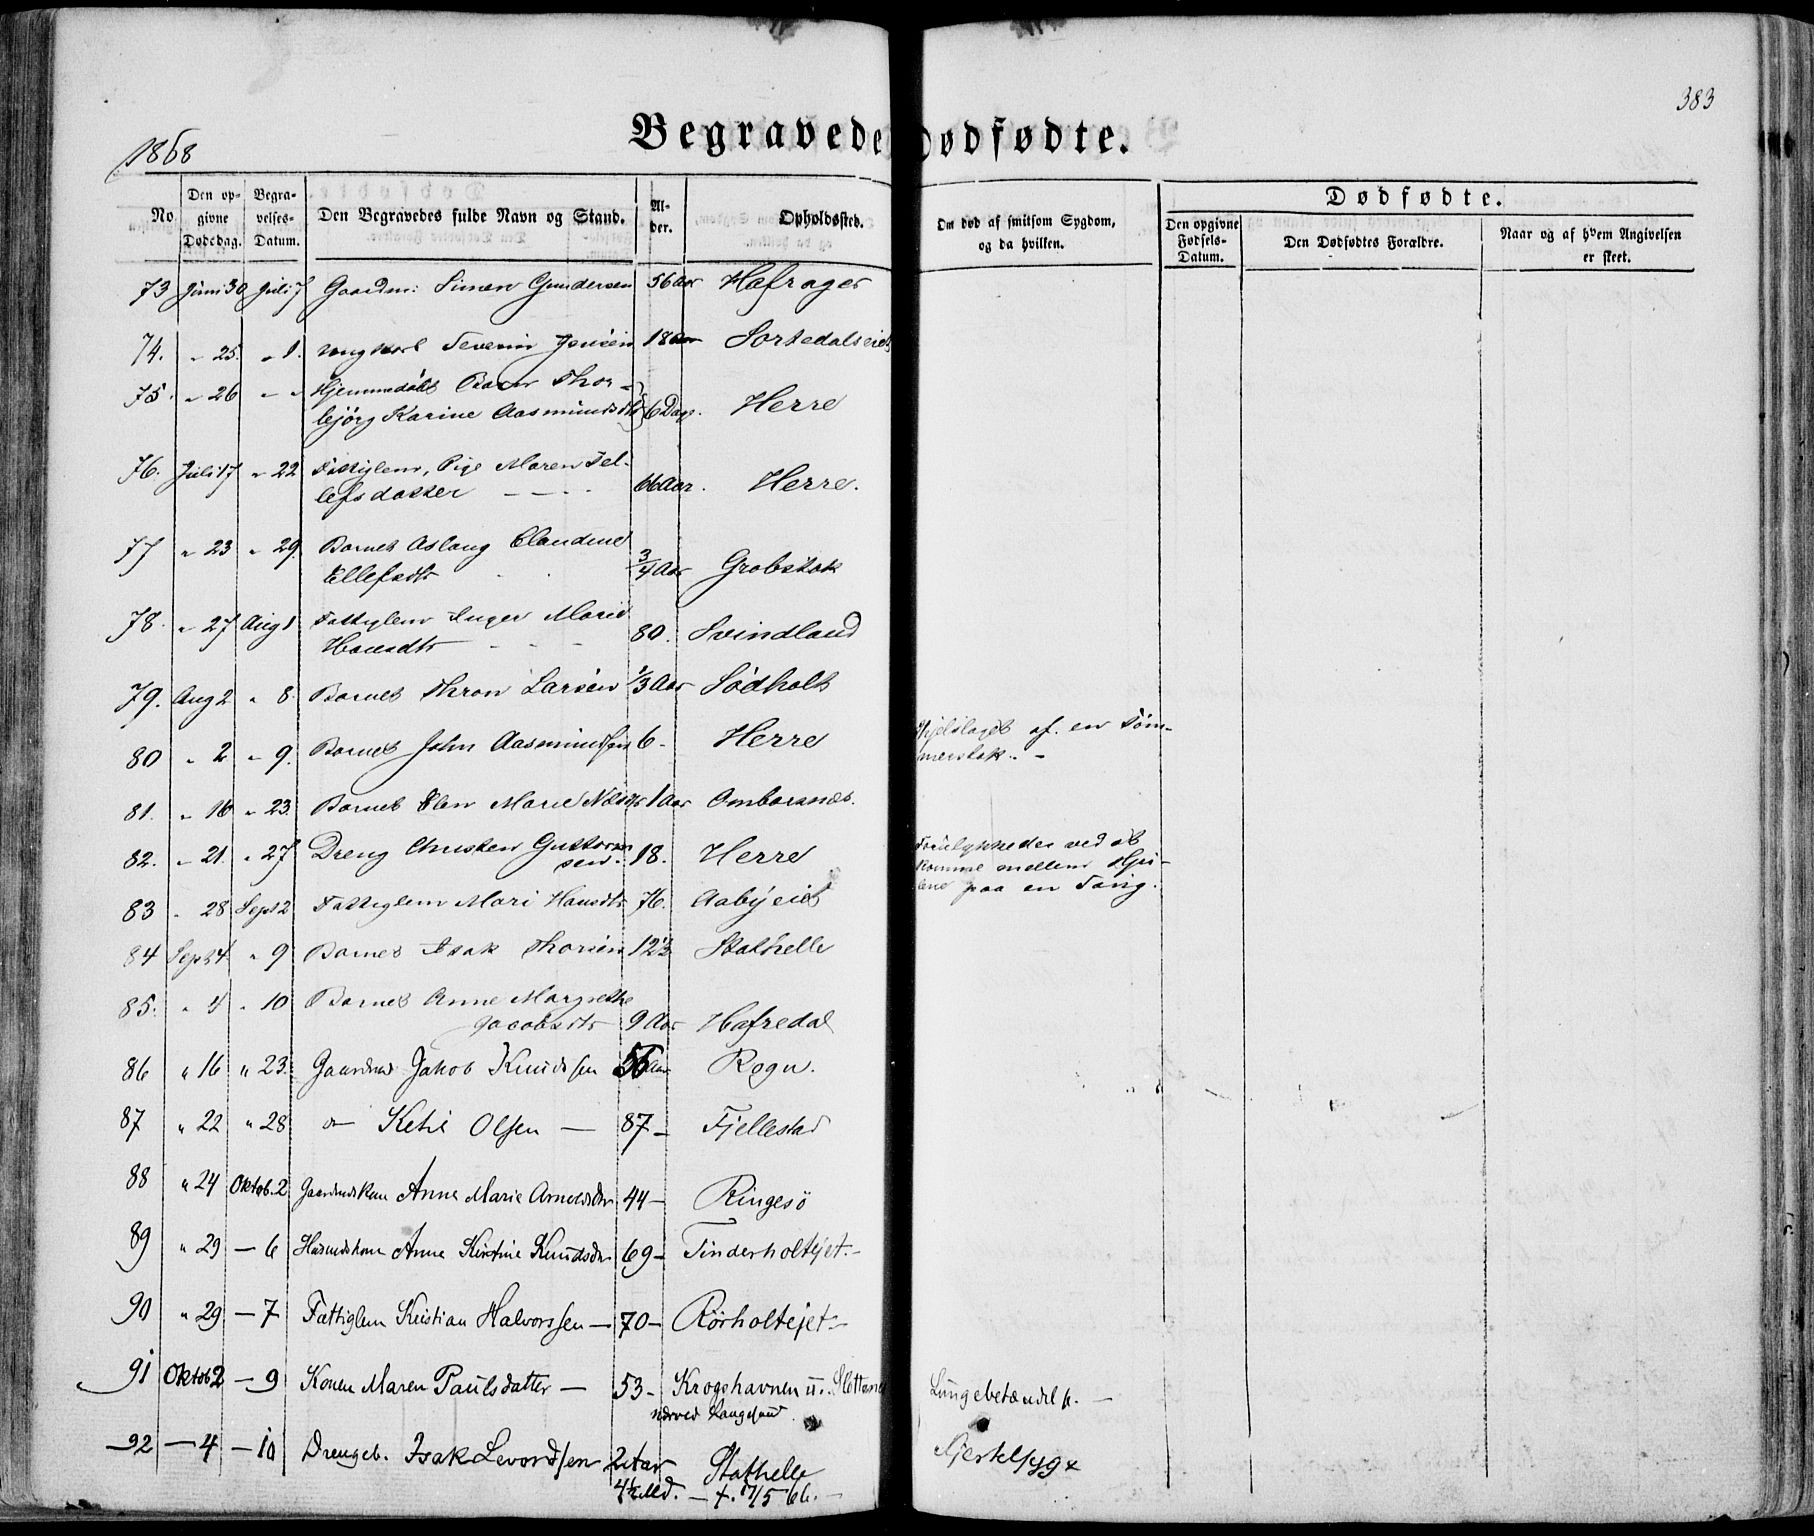 383
1868
Begravede
Dødfødte.
No.
Den opgivne Dødsdag.
Begravelses-Datum.
Den Begravedes fulde Navn og Stand.
Alder.
Opholdssted.
Om død af smitsom Sygdom, og da hvilken.
Dødfødte.
Den opgivne Fødsels-Datum.
Den Dødfødtes Forældre.
Naar og af hvem Angivelsen er skeet.
73 Juni 30 Juli 7 Gaardm: Simen Gundersen 56 Aar Hafrager
74. " 25. " 1. ungkarl Severin Jensen 18 Aar Sortedalseiet
75. " 26 " " Hjemmedøbt Barn Thor-
bjørg Karine Aasmundsdtr 6 Dage. Herre
76. Juli 17 " 22 Fattiglem, Pige Maren Tel-
lefsdatter — — 66 Aar. Herre.
77 " 23 " 29. Barnet Aslaug Claudine
Ellefsdtr 3/4 Aar Grobstok
78. " 27 Aug 1 Fattiglem Inger Marie
Hansdtr 80. Svindland
79. Aug 2 " 8. Barnet Thron Larsen 1/3 Aar Sødholt
80 " 2 " 9. Barnet John Aasmundsen 6 - Herre Ihjelslaget af en Tøm-
merstok. -
81. " 16 " 23. Barnet Elen Marie Nilsdtr 1 Aar Omborsnæs.
82. " 21. " 27 Dreng Christen Guttorm
sen. 18. Herre Forulykkedes ved at
komme mellem Hju-
lene paa en Sang.
83 " 28 Sept 2 Fattiglem Mari Hansdtr 76. Aabyeiet
84 Sept 4 " 9 Barnet Isak Thorsen 12 1/3 Stathelle
85. " 4 " 10 Barnet Anne Margrethe
Jacobsdtr 9 Aar Hafredal
86 " 16 " 23. Gaardmd Jakob Knudssen 56 Aar Rogn.
87 " 22 " 28 — Ketil Olsen — 87 - Fjellestad
88 " 24 Oktob. 2 Gaardmdskone Anne Marie Arnoldsdtr 44 - Ringesö
89 " 29 — 6 Husmdskone Anne Kirstine Knudsdtr 69 - Tinderholtejet. -
90 " 29 — 7 Fattiglem Kristian Halvorssen — 70 - Rörholtejet. -
91 Oktob 2 — 9 Konen Maren Paulsdatter — 53 - Krogshavnen u. Slottenæs Lungebetændels. —
nærved Langesund
92 — 4 — 10 Drengeb. Isak Levordsen 2 Aar Stathelle
4 1/2 Md. — f. 17/5 66. —